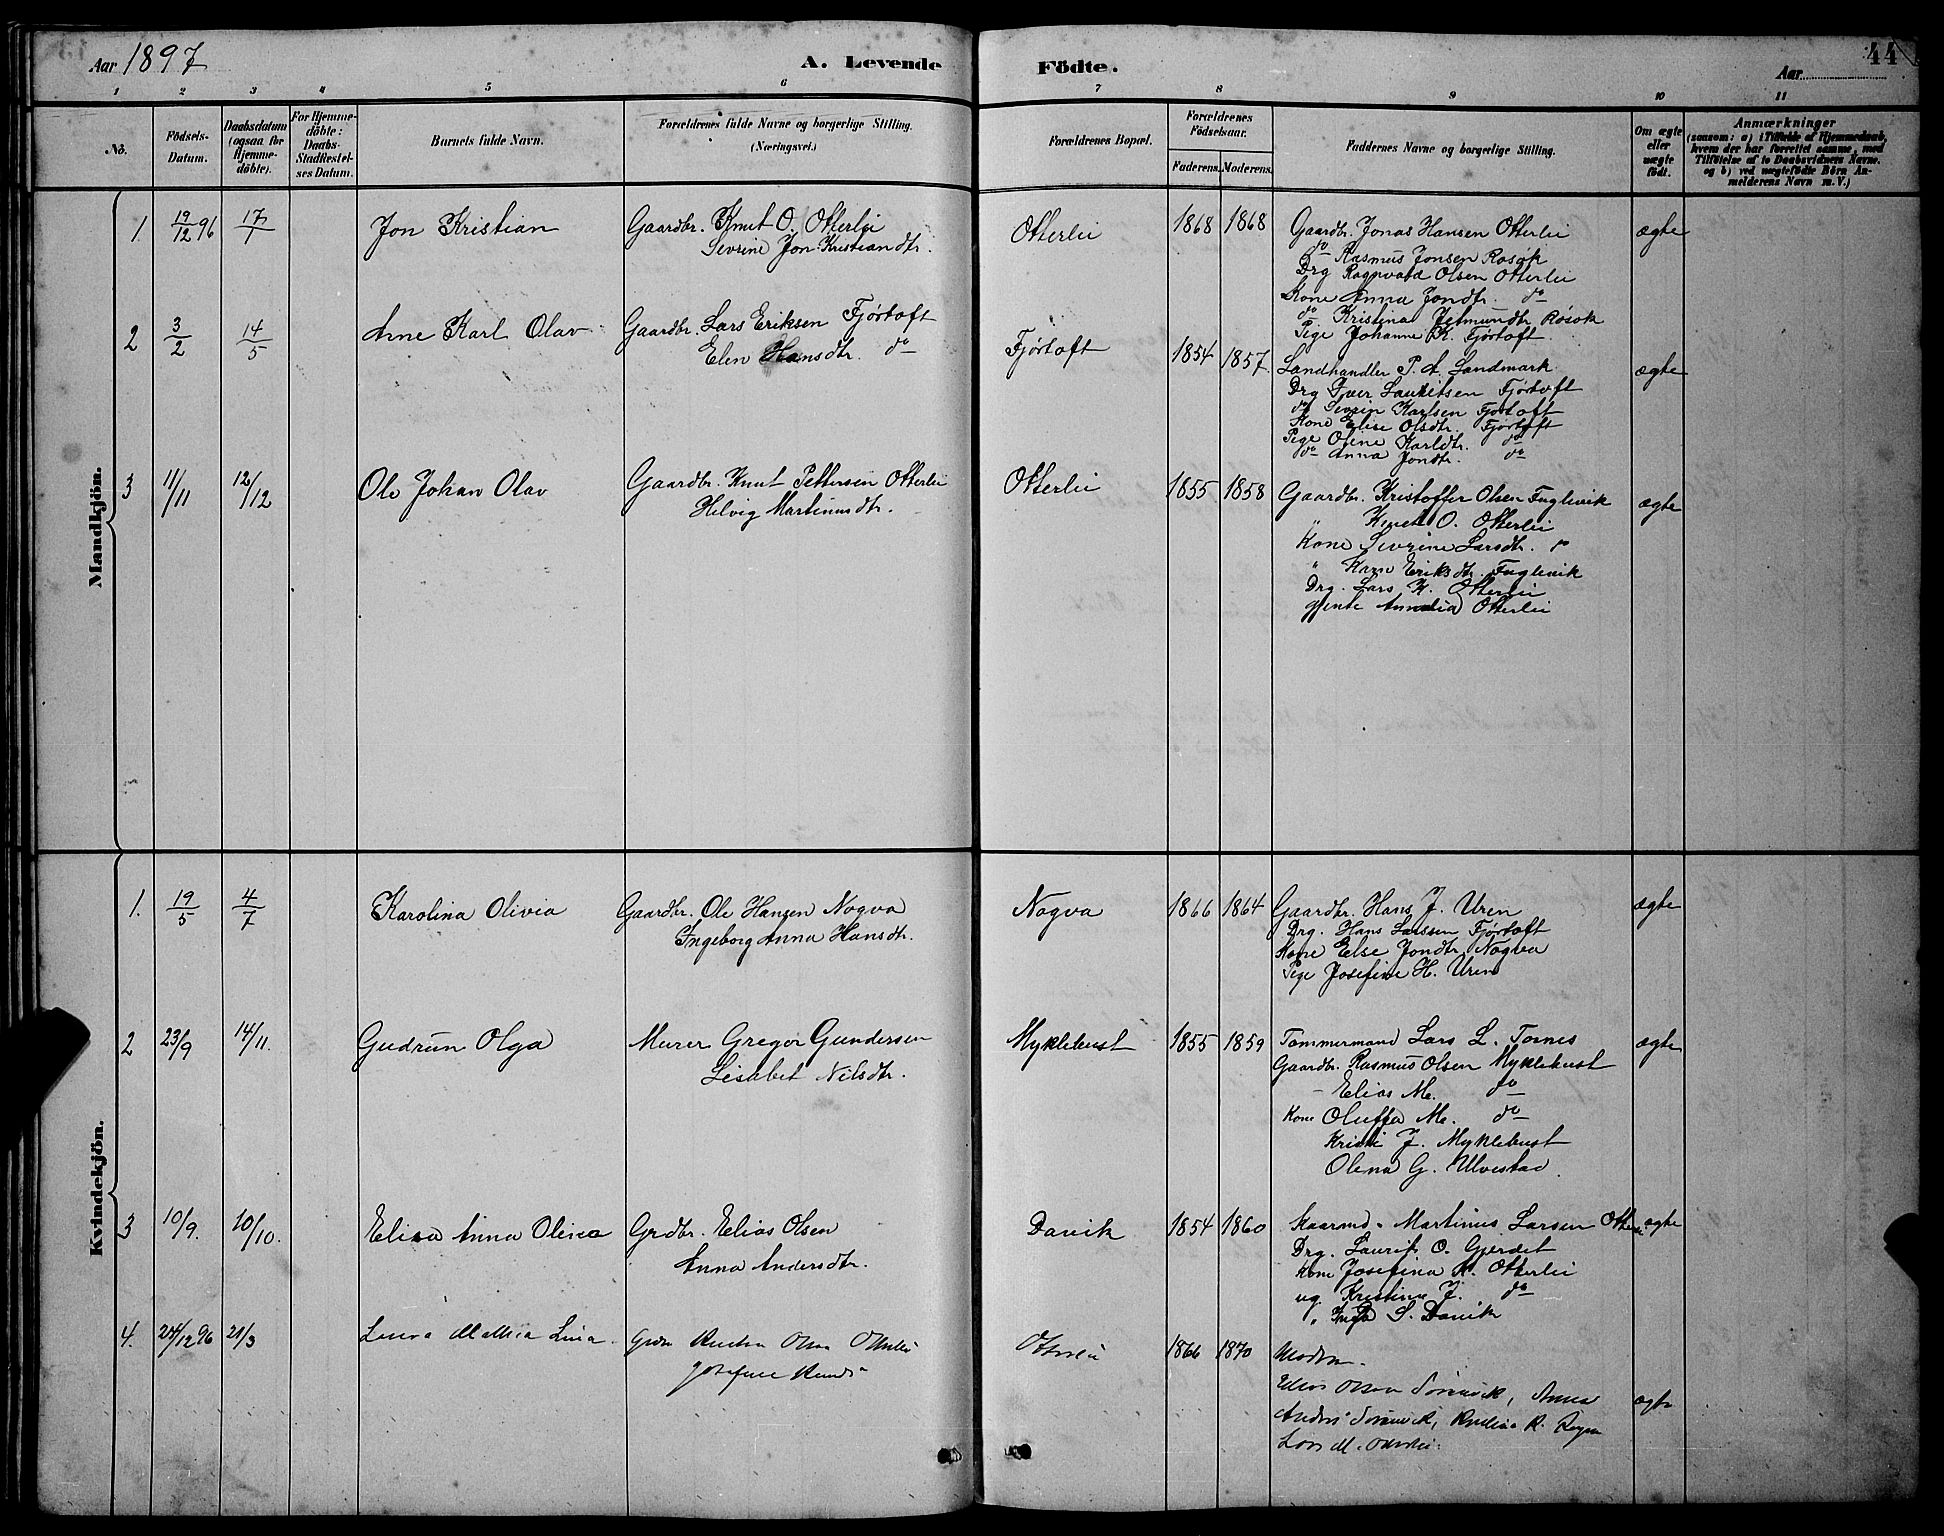 Aar 1897
A. Levende Fødte.
Aar
44
1 2 3 4 5 6 7 8 9 10 11
No.
Fødsels-Datum.
Daabsdatum (ogsaa for Hjemme-døbte).
For Hjemme-døbte: Daabs-Stadfæstel-ses Datum.
Barnets fulde Navn.
Forældrenes fulde Navne og borgerlige Stilling.
(Næringsvei.)
Forældrenes Bopæl.
Forældrenes Fødselsaar.
Faderens. Moderens.
Faddernes Navne og borgerlige Stilling.
Om ægte eller uægte født.
Anmærkninger
(saasom: a) i Tilfælde af Hjemmedaab,
hvem der har forrettet samme, med
Tilføielse af to Daabsvidners Navne.
og b) ved uægtefødte Børn An-
melderens Navn m. V.)
Mandkjön.
1. 19/12 96 17/1 Jon Kristian Gaardbr. Knut O. Otterlei
Sevrine Jon Kristiandtr.
Otterlei 1868 1868 Gaardbr. Jonas Hansen Otterlei ægte
do Rasmus Jonsen Rosok
Drg Ragnvald Olsen Otterlei
Kone Anna Jondtr. do
do Kristina Jetmundtr Røsok
Pige Johanne K. Fjørtoft
2 3/2 14/5 Arne Karl Olav Gaardbr. Lars Eriksen Fjørtoft
Elen Hansdtr. do
Fjørtoft 1854 1857 Landhandler P. A. Landmark ægte
Drg Iver Lauritsen Fjørtoft
do Sevrin Karlsen Fjørtoft
Kone Elise Olsdtr. Fjørtoft
Pige Oline Karldtr. do
do Anna Jondtr. do
3 11/11 12/12 Ole Johan Olav Gaardbr. Knut Pettersen Otterlei
Helvig Martinusdtr.
Otterlei 1855 1858 Gaardbr. Kristoffer Olsen Fuglevik ægte
" Knut O. Otterlei
Kone Sevrine Larsdtr.
" Karn Eriksdtr. Fuglevik
Drg. Lars K. Otterlei
gjente Annalia Otterlei
Kvindekjön.
1. 19/5 4/7 Karolina Olivia Gaardbr. Ole Hansen Nogva
Ingeborg Anna Hansdtr.
Nogva 1866 1864 Gaardbr. Hans J. Uren ægte
Drg. Hans Larssen Fjørtoft
Kone Else Jondtr. Nogva
Pige Josefine H. Uren
2 23/9 14/11. Gudrun Olga Murer Gregor Gundersen
Lisabet Nilsdtr.
Myklebust 1855 1859 Tømmermand Lars L. Tornes ægte
Gaardbr. Rasmus Olsen Myklebust
– Elias M. do
Kone Oluffa M. do
Kristi J. Myklebust
Olena G. Ulvestad.
3 10/9. 10/10. Elisa Anna Olivia Grdbr. Elias Olsen
Anna Andersdtr.
Davik 1854 1860 Kaarmd. Martinus Larsen Otterlei ægte
Drg. Laurits O. Gjerdet
Kone Josefina K. Otterlei
ug Kristine J. do
" Inga S. Davik
4. 24/12 96 21/3 Laura Mathea Lina. Olsen Otterlei
Josefine
Otterlei 1866 1870 Modren. ægte
Elias Olsen Anna
Lars M. Otterlei.